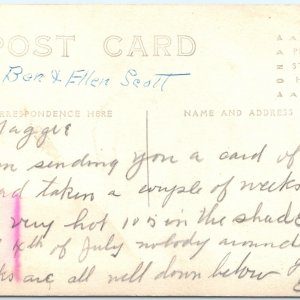 POST CARD
Ben & Ellen Scott
RRESPONDENCE HERE
NAME AND ADDRESS
Maggie
sending you a card of
had taken a couple of weeks
very hot 105 in the shade
4th of July nobody around
are all well down below